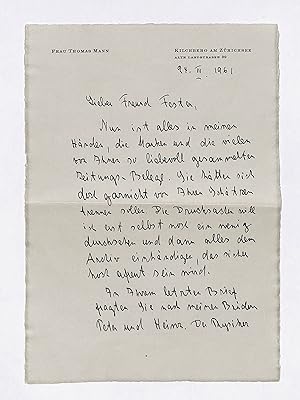 FRAU THOMAS MANN
KILCHBERG AM ZÜRICHSEE
ALTE LANDSTRASSE 39
28. II. 1961
Lieber Freund Fester,
Nun ist alles in meinen
Händen, die Marken und die vielen
von Ihnen so liebevoll gesammelten
Zeitungs-Belege. Sie hätten sich
doch garnicht von Ihren Schätzen
trennen sollen. Die Drucksachen will
ich erst selbst noch ein wenig
durchsehen und dann alles dem
Archiv einhändigen, das sicher
hoch erfreut sein wird.
In Ihrem letzten Brief
fragten Sie nach meinen Brüdern
Peter und Heinz. Der Physiker